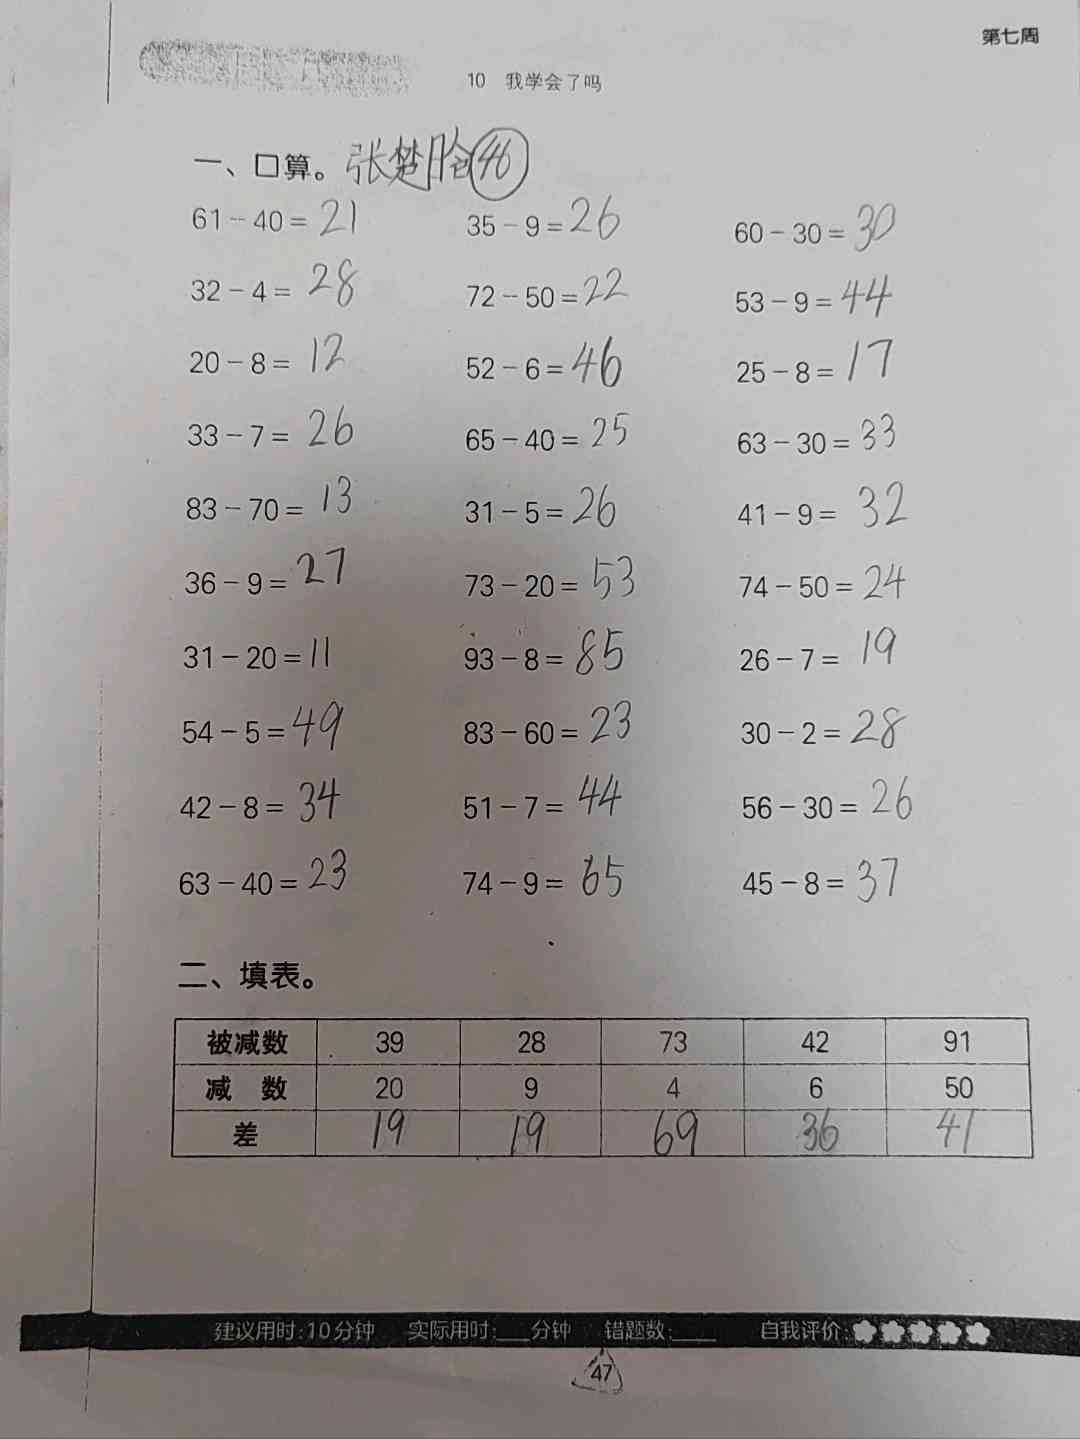 第七周
10 我学会了吗
一、口算。张楚 46
61-40=21 35-9=26 60-30=30
32-4=28 72-50=22 53-9=44
20-8=12 52-6=46 25-8=17
33-7=26 65-40=25 63-30=33
83-70=13 31-5=26 41-9=32
36-9=27 73-20=53 74-50=24
31-20=11 93-8=85 26-7=19
54-5=49 83-60=23 30-2=28
42-8=34 51-7=44 56-30=26
63-40=23 74-9=65 45-8=37
二、填表。
被减数 39 28 73 42 91
减 数 20 9 4 6 50
差 19 19 69 36 41
建议用时:10分钟 实际用时:___分钟 错题数:____ 自我评价:
47